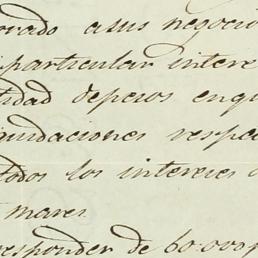 ovado a sus negocio
particular intere
tidad de pesos enqu
quidaciones respe
todos los intereses
mares
responder de 60.000 p